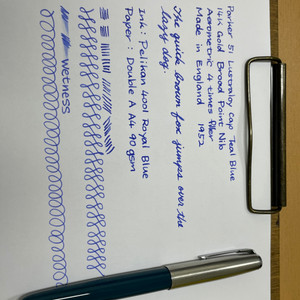 Parker 51 Lustraloy Cap Teal Blue
14K Gold Broad Point Nib
Aerometric 4 times filler
Made in England 1952
The quick brown fox jumps over the
lazy dog.
Ink: Pelikan 4001 Royal Blue
Paper: Double A A4 90 gsm
wetness